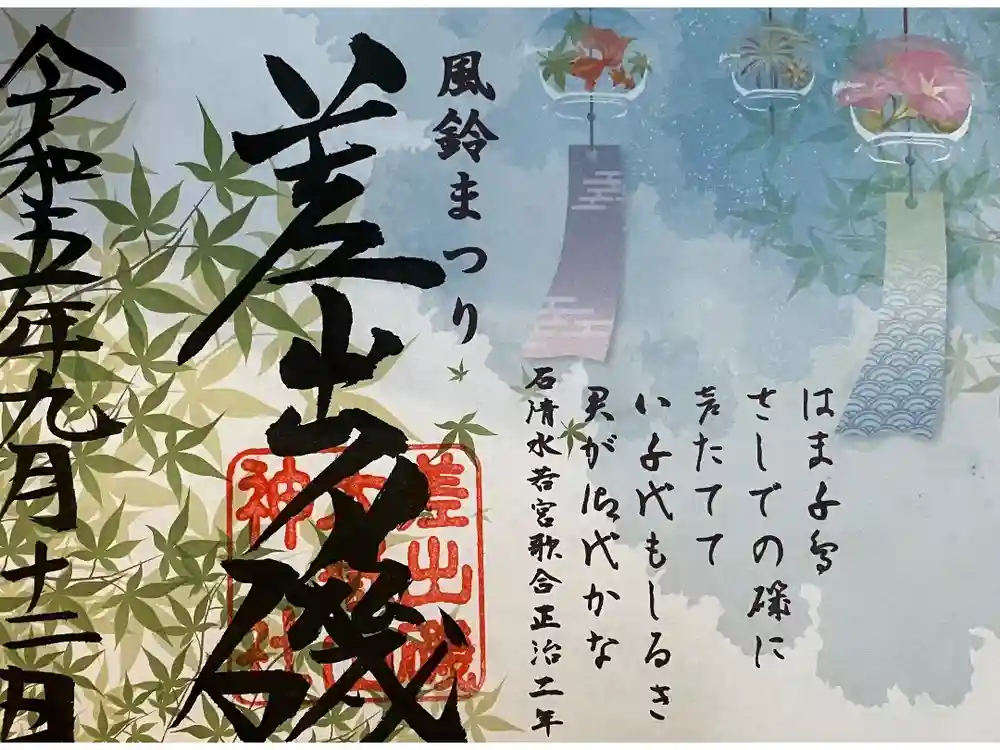 はま千鳥
さしでの磯に
声たてて
い千代もしるき
君が御代かな
石清水若宮歌合正治二年
風鈴まつり
差出乃磯
差出磯
神社
令和五年九月十二日